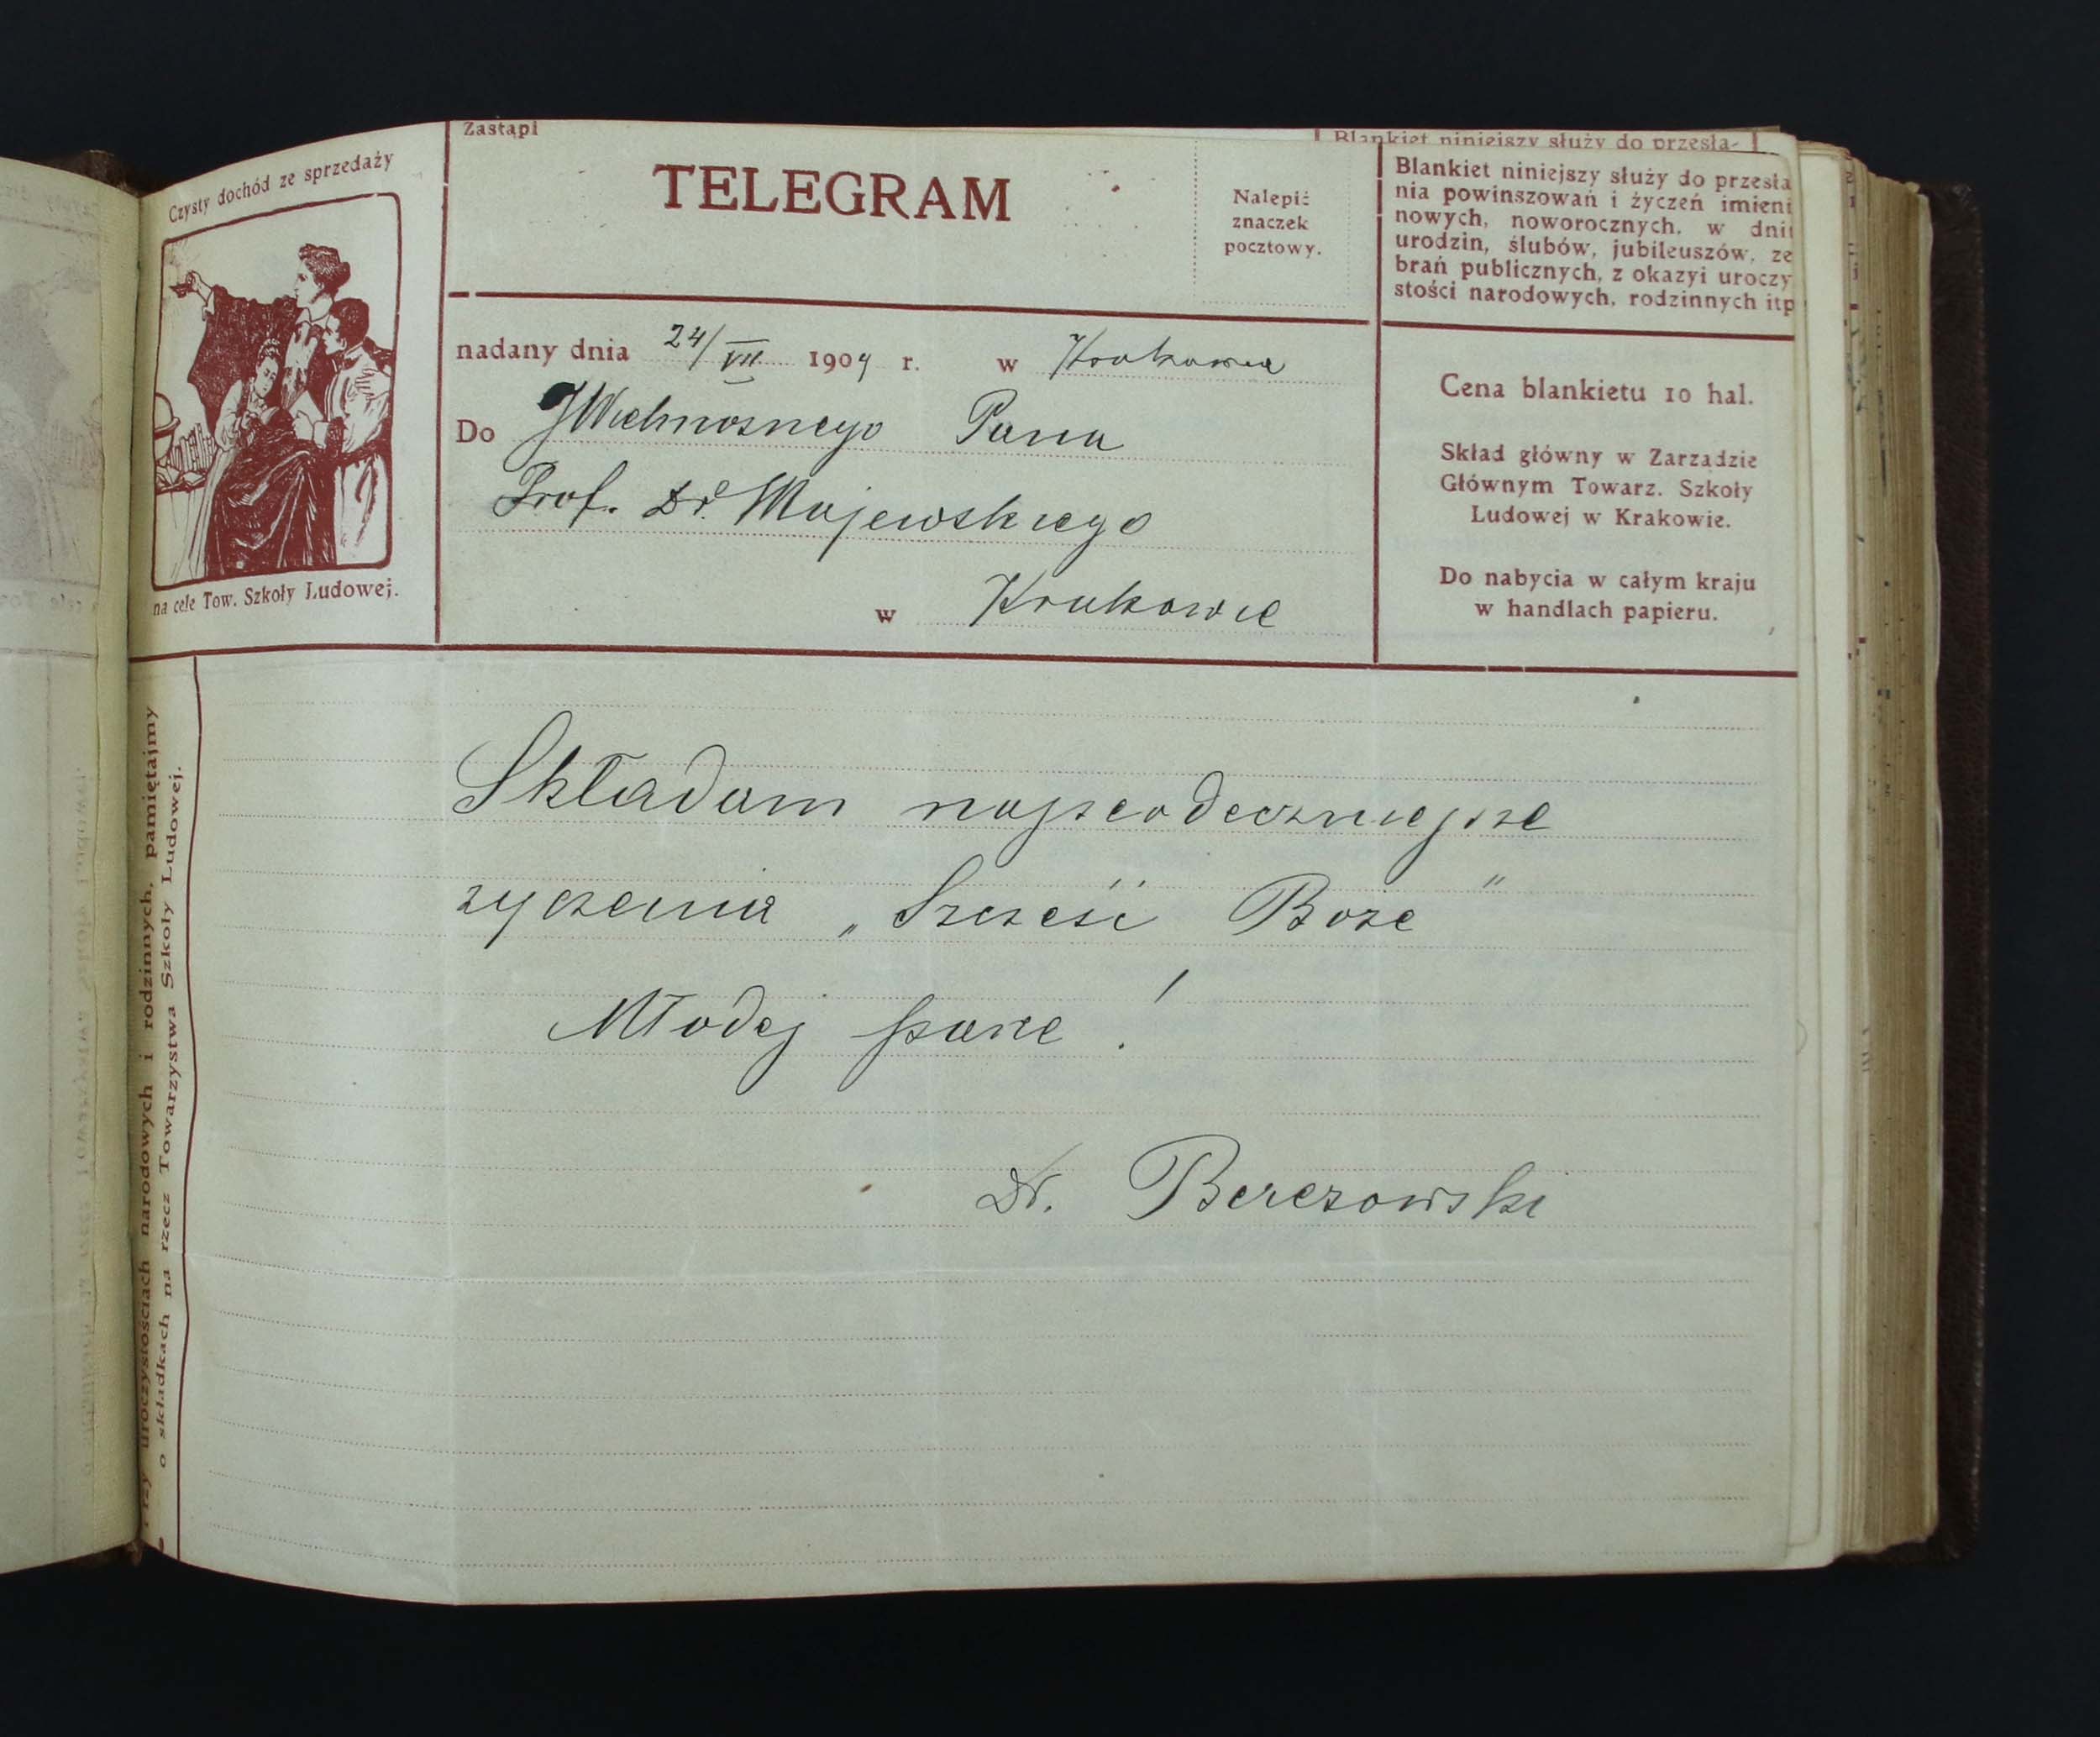 Zastąpi
Blankiet niniejszy służy do przesła-
Czysty dochód ze sprzedaży
na cele Tow. Szkoły Ludowej.
TELEGRAM
Nalepić
znaczek
pocztowy.
Blankiet niniejszy służy do przesła
nia powinszowań i życzeń imieni
nowych, noworocznych, w dni
urodzin, ślubów, jubileuszów, ze
brań publicznych, z okazyi uroczy
stości narodowych, rodzinnych itp
nadany dnia 24/VII 1909 r. w Krakowie
Do JWielmożnego Pana
Prof. Dr. Majewskiego
w Krakowie
Cena blankietu 10 hal.
Skład główny w Zarządzie
Głównym Towarz. Szkoły
Ludowej w Krakowie.
Do nabycia w całym kraju
w handlach papieru.
uroczystościach narodowych i rodzinnych, pamiętajmy
o składkach na rzecz Towarzystwa Szkoły Ludowej.
Składam najserdeczniejsze
życzenia „Szcześć Boże"
Młodej parze!
Dr. Berezowski